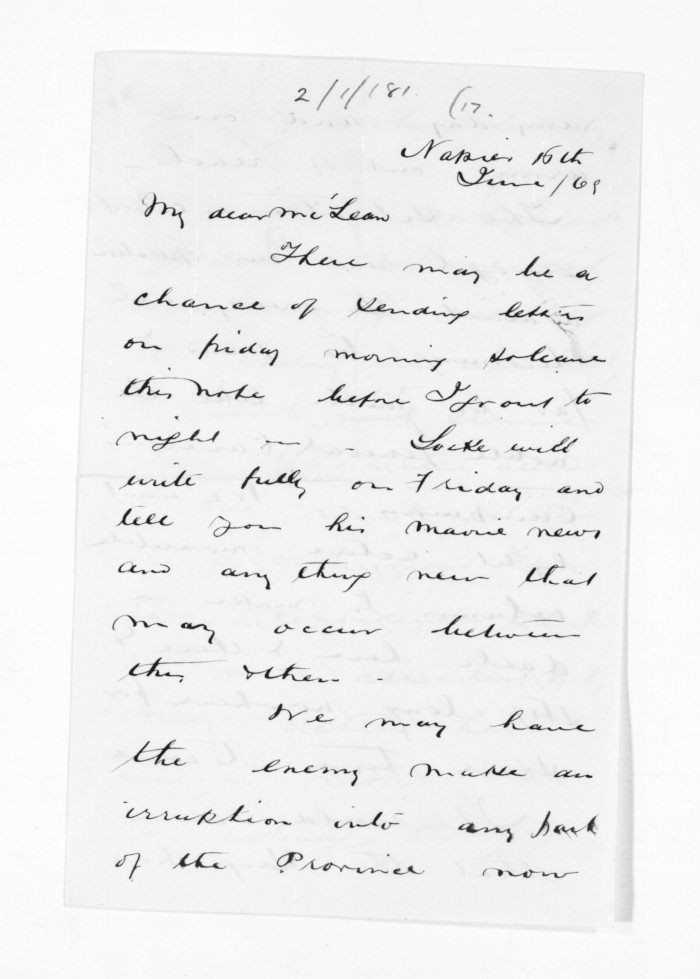 2/1/181. (17.
Napier 16th
June/69
My dear McLean
There may be a
chance of sending letters
on friday morning so leave
this note before I go out to
night — Locke will
write fully on Friday and
tell you his maorie news
and any thing new that
may occur between
this & then -
We may have
the enemy make an
irruption into any part
of the Province now